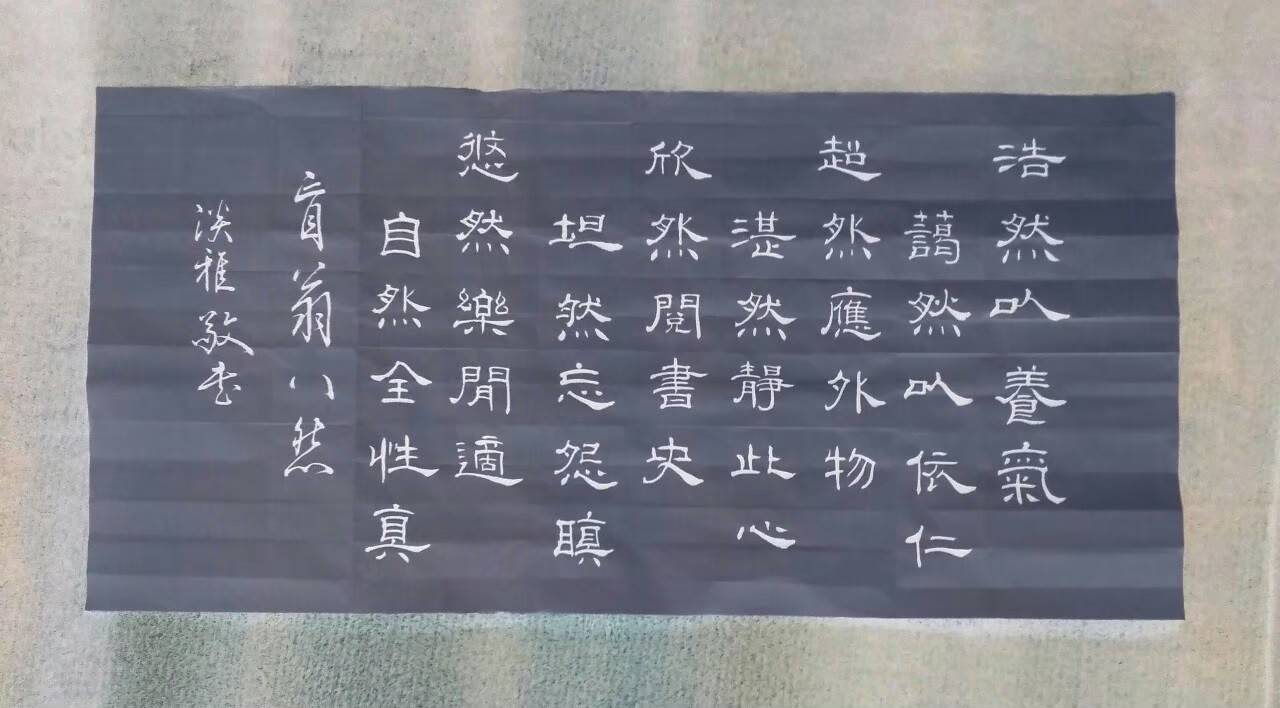 浩然以養氣
藹然以依仁
超然應外物
湛然静此心
欣然閱書史
坦然忘怨瞋
悠然樂閒適
自然全性真
盲翁八然
淡雅敬書